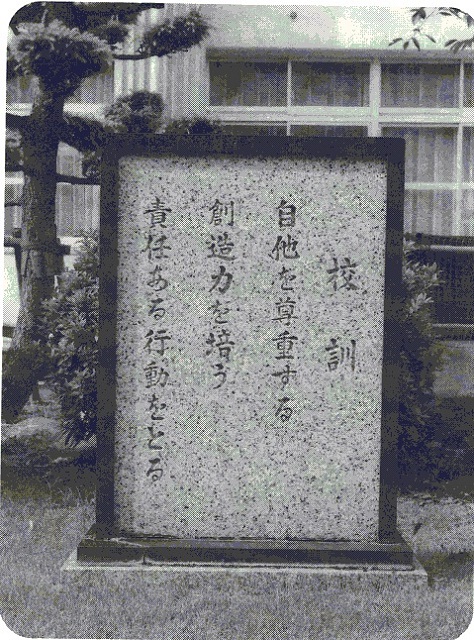 校訓
自他を尊重する
創造力を培う
責任ある行動をとる